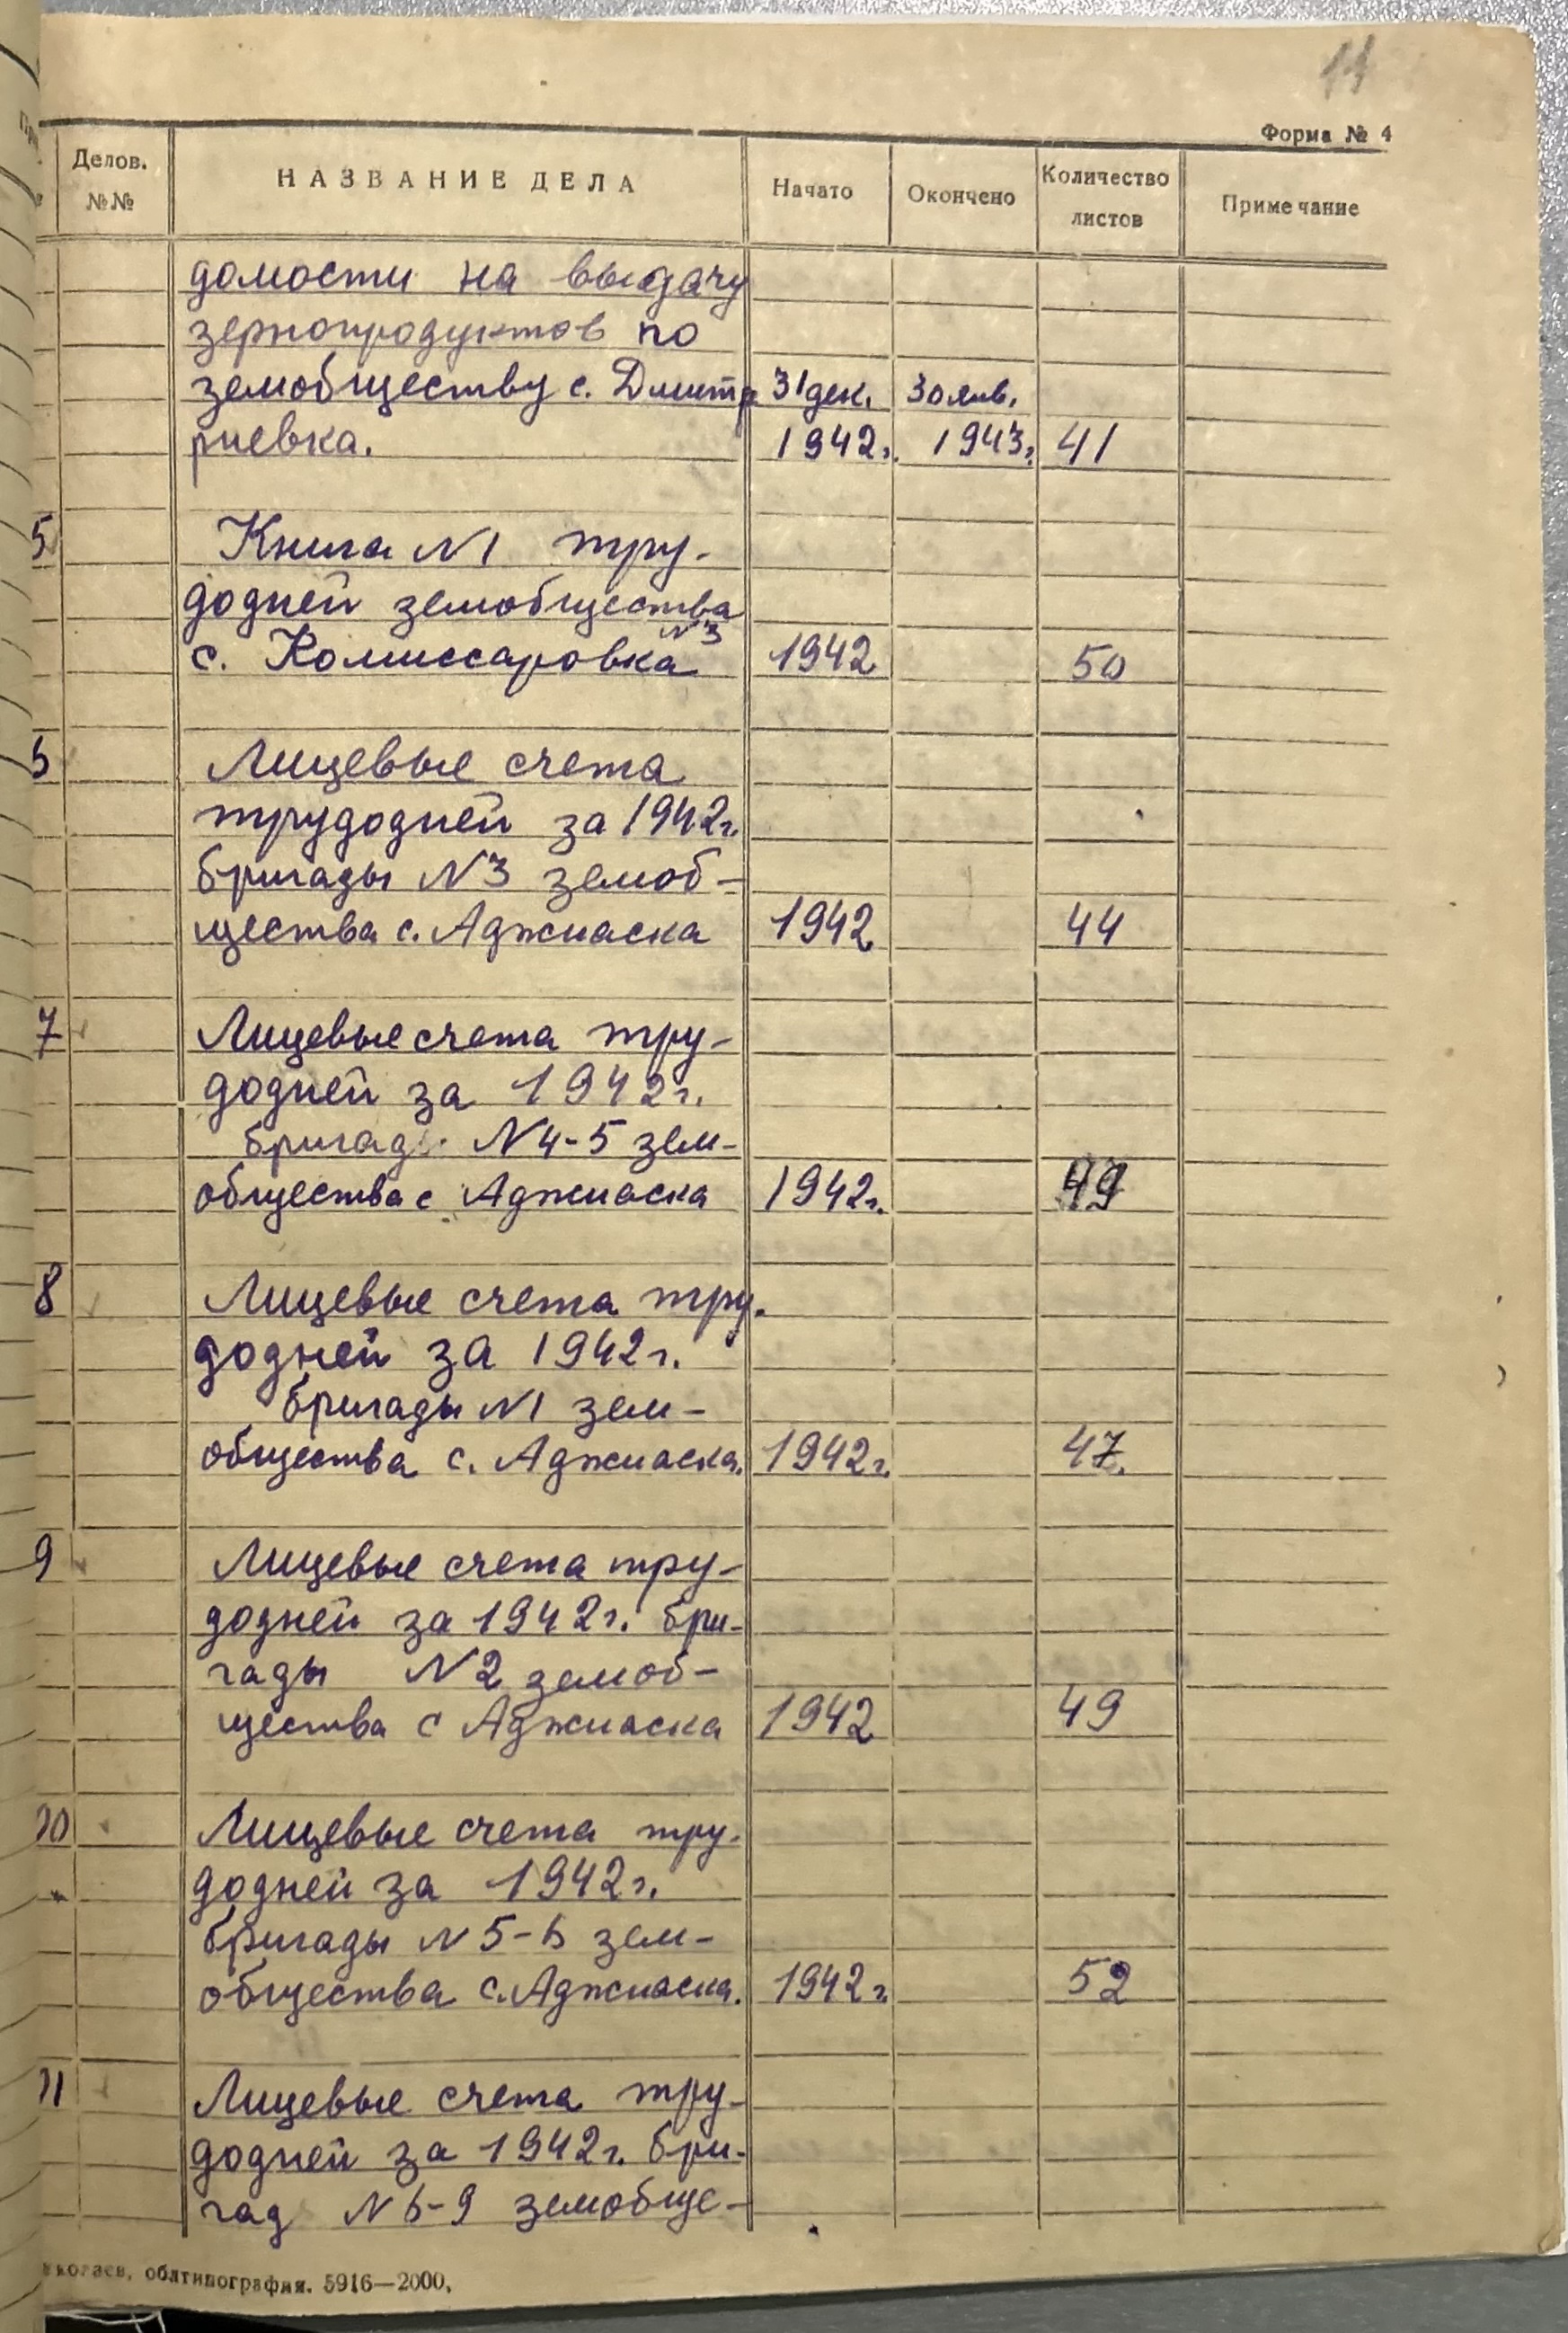 14
Форма № 4
Делов. №№
НАЗВАНИЕ ДЕЛА
Начато
Окончено
Количество листов
Примечание
домости на выдачу
зернопродуктов по
земобществу с. Дмитр 31 дек. 30 янв.
риевка. 1942г. 1943г. 41
5 Книга N1 тру-
додней земобщества
с. Комиссаровка N3 1942 50
6 Лицевые счета
трудодней за 1942г.
бригады N3 земоб-
щества с. Аджиаска 1942 44
7 Лицевые счета тру-
додней за 1942г.
бригады N4-5 зем-
общества с Аджиаска 1942г. 49
8 Лицевые счета тру-
додней за 1942г.
бригады N1 зем-
общества с. Аджиаска. 1942г. 47.
9 Лицевые счета тру-
додней за 1942г. бри-
гады N2 земоб-
щества с Аджиаска 1942 49
10 Лицевые счета тру-
додней за 1942г.
бригады N5-6 зем-
общества с. Аджиаска. 1942г. 52
11 Лицевые счета тру-
додней за 1942г. бри-
гад N6-9 земобще-
иколаев, облтипография. 5916—2000.